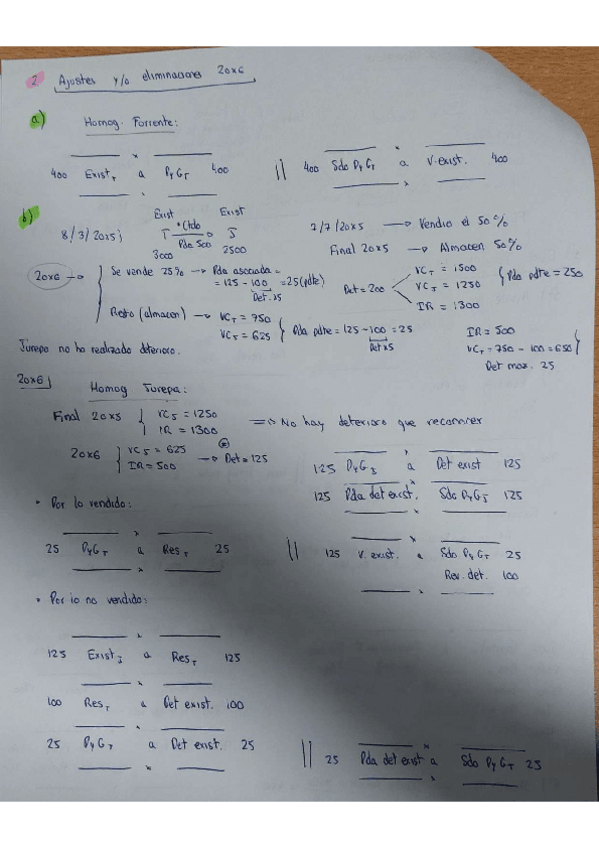 2. Ajustes y/o eliminaciones 20x6
a) Homog. Torrente:
400 Exist_T a PyG_T 400 || 400 Sdo PyG_T a V. exist. 400
b) 8/3/20x5; T → J
Exist Exist
Ctdo
Pda 500
3000 2500
2/7/20x5 → Vendio el 50%
Final 20x5 → Almacen 50%
20x6 →
Se vende 25% → Pda asociada = = 125 - 100 = 25 (pdte)
Det. x5
Det = 200
VC_T = 1500
VC_J = 1250
IR = 1300
Pda pdte = 250
Resto (almacen) → VC_T = 750
VC_J = 625
Pda pdte = 125 - 100 = 25
Det x5
IR = 500
VC_T = 750 - 100 = 650
Det max. 25
Jurepa no ha realizado deterioro.
20x6 Homog Jurepa:
Final 20x5 { VC_J = 1250
IR = 1300
⇒ No hay deterioro que reconocer
20x6 { VC_J = 625
IR = 500
→ Det = 125
125 PyG_J a Det exist 125
125 Pda det exist. a Sdo PyG_J 125
• Por lo vendido:
25 PyG_T a Res_T 25 || 125 V. exist. a Sdo PyG_T 25
Rev. det. 100
• Por lo no vendido:
125 Exist_J a Res_T 125
100 Res_T a Det exist. 100
25 PyG_T a Det exist. 25 || 25 Pda det exist a Sdo PyG_T 25